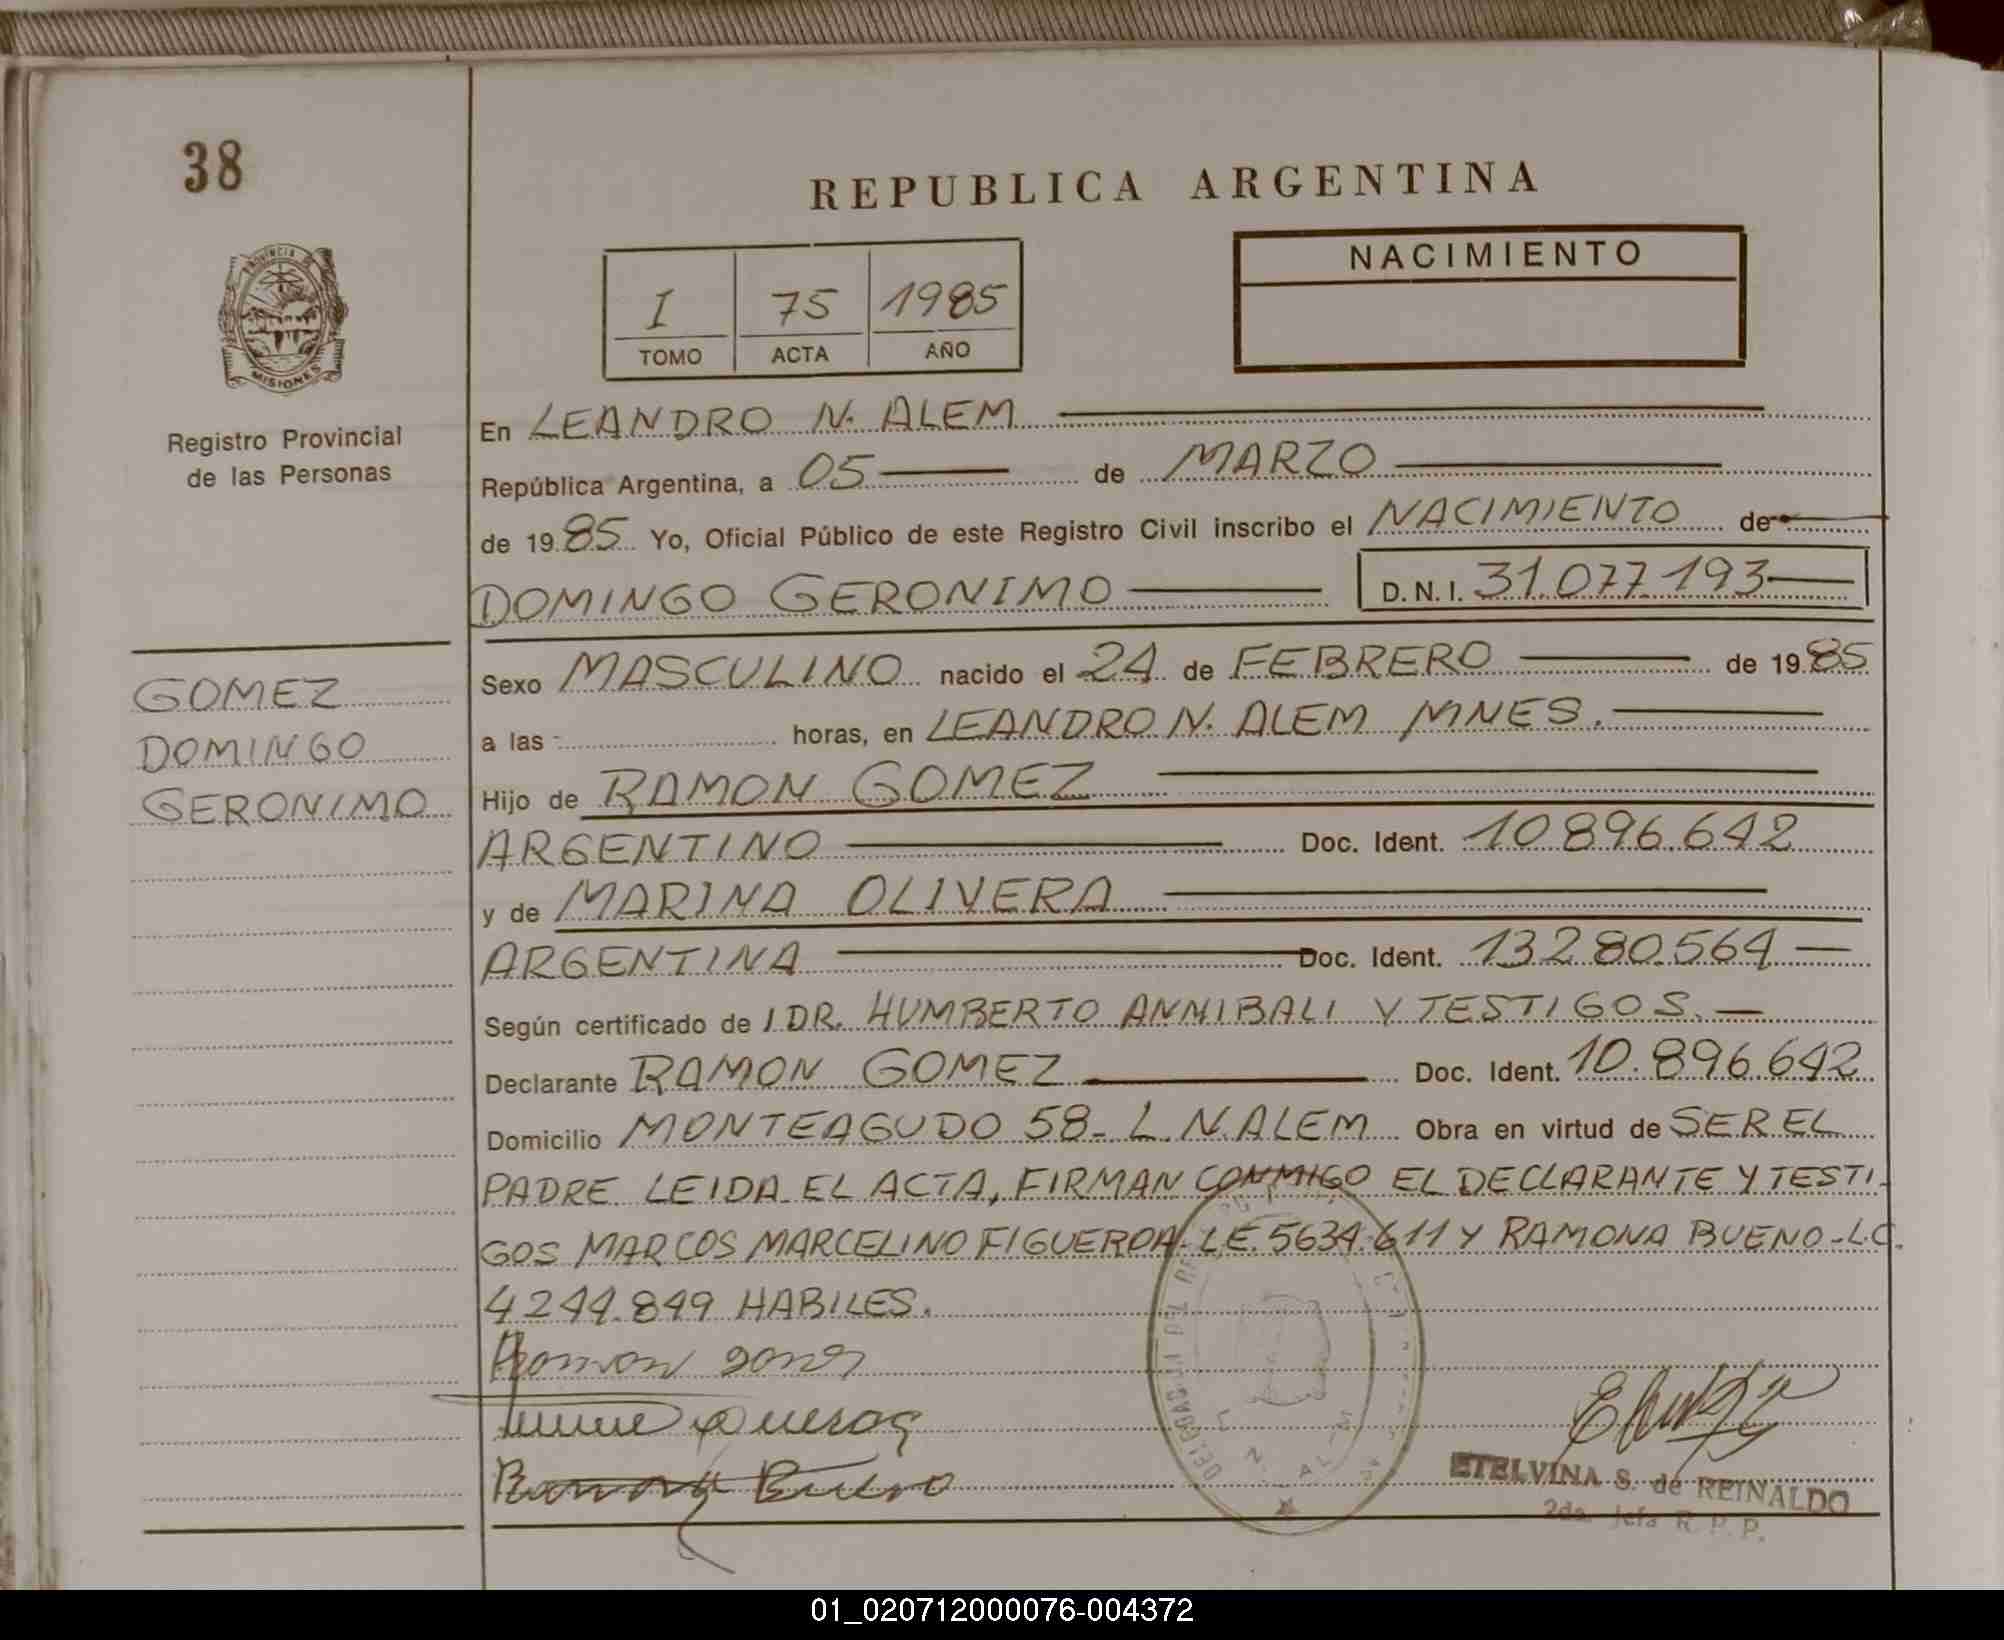 38
REPUBLICA ARGENTINA
I 75 1985
TOMO ACTA AÑO
NACIMIENTO
PROVINCIA DE
MISIONES
Registro Provincial
de las Personas
GOMEZ
DOMINGO
GERONIMO
En LEANDRO N. ALEM
República Argentina, a 05 de MARZO
de 1985 Yo, Oficial Público de este Registro Civil inscribo el NACIMIENTO de
DOMINGO GERONIMO D.N.I. 31.077.193
Sexo MASCULINO nacido el 24 de FEBRERO de 1985
a las - horas, en LEANDRO N. ALEM MNES.
Hijo de RAMON GOMEZ
ARGENTINO Doc. Ident. 10.896.642
y de MARINA OLIVERA
ARGENTINA Doc. Ident. 13280.564
Según certificado de 1 DR. HUMBERTO ANNIBALI Y TESTIGOS.
Declarante RAMON GOMEZ Doc. Ident. 10.896.642
Domicilio MONTEAGUDO 58- L.N.ALEM Obra en virtud de SER EL
PADRE LEIDA EL ACTA, FIRMAN CONMIGO EL DECLARANTE Y TESTI-
GOS MARCOS MARCELINO FIGUEROA- L.E. 5634.611 Y RAMONA BUENO-L.C.
4244.849 HABILES.
Ramon
Ramona Bueno
DELEGACION DEL
L. N. ALEM
ETELVINA S. de REINALDO
2da. Jefa R. P. P.
01_020712000076-004372